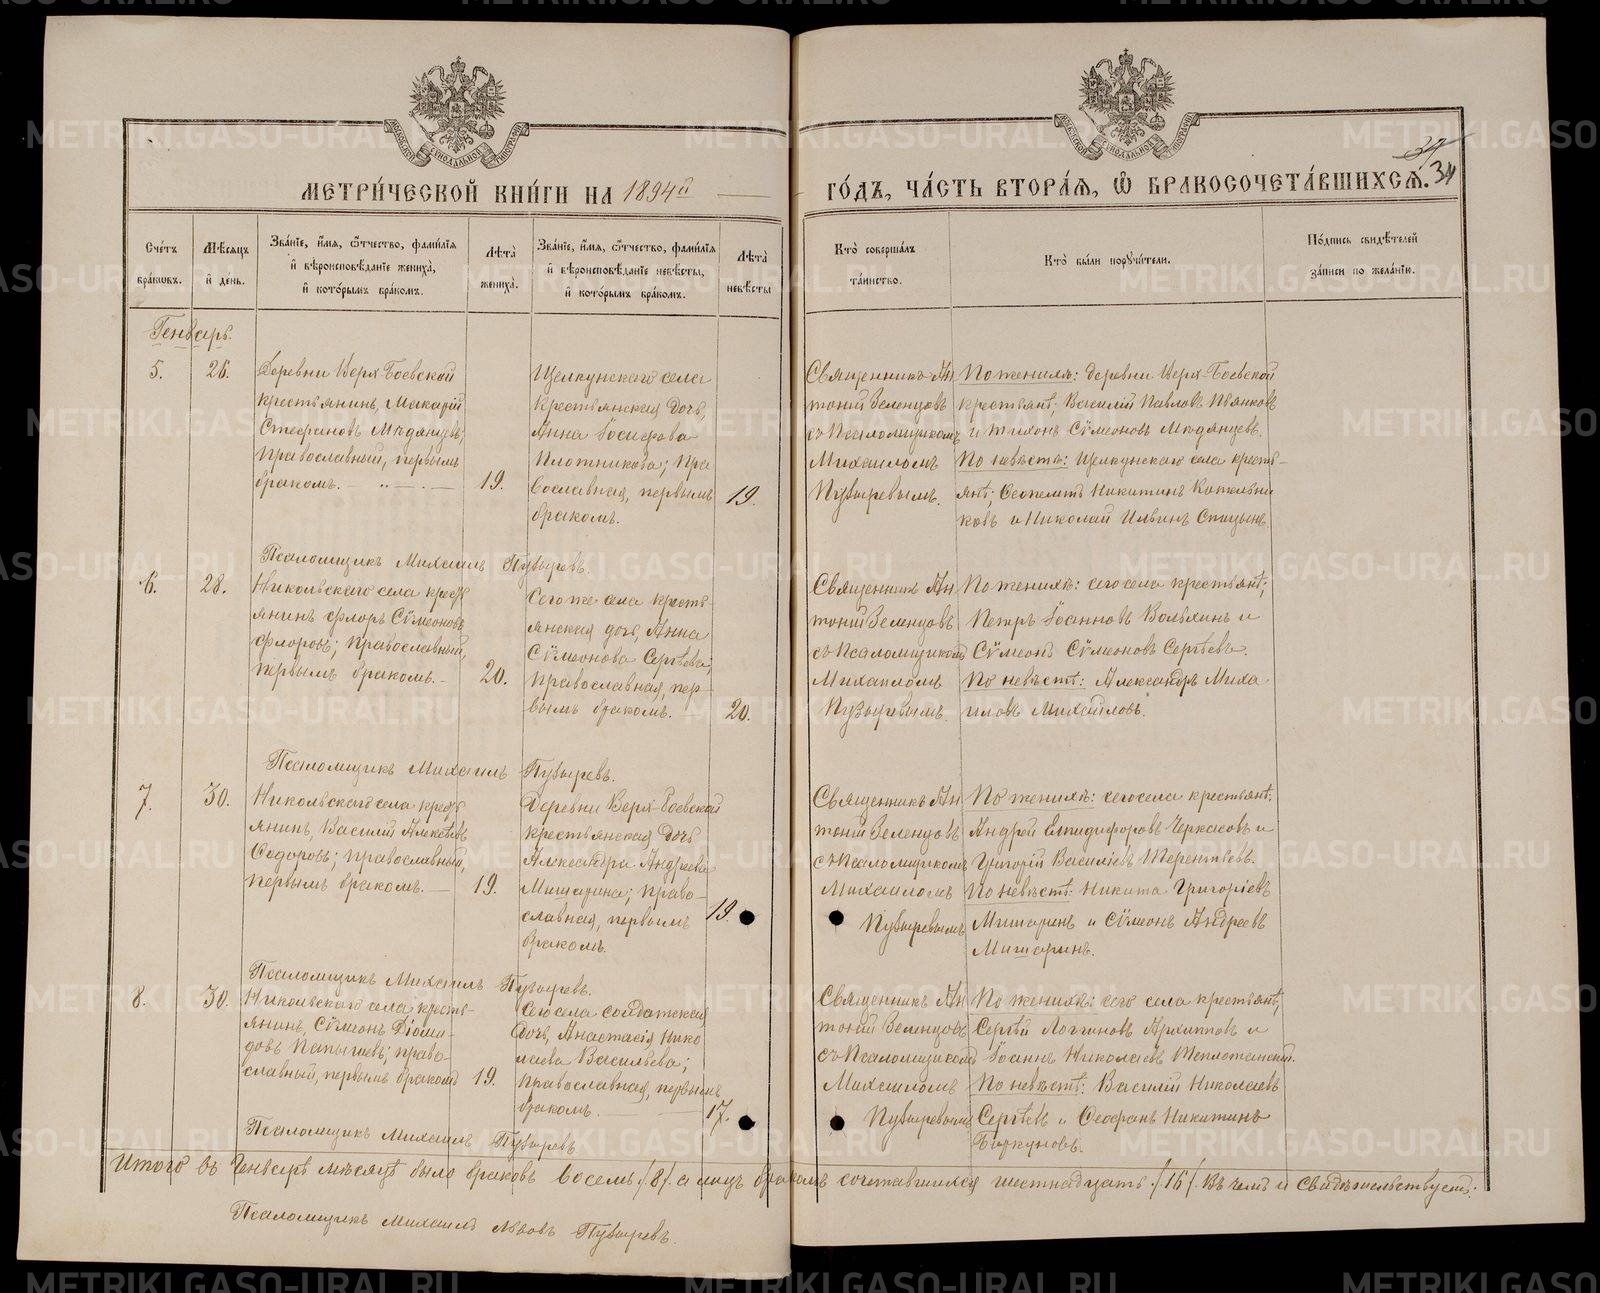 МЕТРИ́ЧЕСКОЙ КНИ́ГИ НА 1894й
ГО́ДЪ, ЧА́СТЬ ВТОРА́Я, Ѡ БРАКОСОЧЕТА́ВШИХСЯ. 34
Сче́тъ бра́ковъ.
Мѣ́сяцъ и де́нь.
Зва́нїе, и́мя, ѻ҆́тчество, фами́лїя и вѣроисповѣ́данїе жениха̀, и кото́рымъ бра́комъ.
Лѣта̀ жениха̀.
Зва́нїе, и́мя, ѻ҆́тчество, фами́лїя и вѣроисповѣ́данїе невѣ́сты, и кото́рымъ бра́комъ.
Лѣта̀ невѣ́сты
Кто̀ соверша́лъ та́инство.
Кто̀ бы́ли поручи́тели.
По́дпись свидѣ́телей за́писи по жела́нїю.
Генварь.
5.
26.
Деревни Верх-Боевской
крестьянинъ, Макарій
Стефановъ Мѣдянцевъ;
православный, первымъ
бракомъ.
19.
Щелкунскаго села
крестьянская дочь,
Анна Іосифова
Плотникова; пра
вославная, первымъ
бракомъ.
19.
Священникъ Ан
тоній Зеленцовъ
съ Псаломщикомъ
Михаиломъ
Пузыревымъ.
По женихѣ: деревни Верх-Боевской
крестьянѣ; Василій Павловъ Пьянковъ
и Тихонъ Сѵмеоновъ Мѣдянцевъ.
По невѣстѣ: Щелкунскаго села кресть-
янѣ; Феопемтъ Никитинъ Котельни
ковъ и Николай Ильинъ Спицынъ.
Псаломщикъ Михаилъ Пузыревъ.
6.
28.
Никольскаго села крест
янинъ Флоръ Сѵмеоновъ
Флоровъ; православный,
первымъ бракомъ.
20.
Сего же села кресть-
янская дочь, Анна
Сѵмеонова Сергѣева;
православная, пер-
вымъ бракомъ.
20.
Священникъ Ан
тоній Зеленцовъ
съ Псаломщикомъ
Михаиломъ
Пузыревымъ.
По женихѣ: сего села крестьянѣ;
Петръ Іоанновъ Вольхинъ и
Сѵмеонъ Сѵмеоновъ Сергѣевъ.
По невѣстѣ: Александръ Миха
иловъ Михайловъ.
Псаломщикъ Михаилъ Пузыревъ.
7.
30.
Никольскаго села крест
янинъ, Василій Алексѣевъ
Ѳедоровъ; православный,
первымъ бракомъ.
19.
Деревни Верх-Боевской
крестьянская дочь
Александра Андреева
Мишарина; право-
славная, первымъ
бракомъ.
19.
Священникъ Ан
тоній Зеленцовъ
съ Псаломщикомъ
Михаиломъ
Пузыревымъ
По женихѣ: сего села крестьянѣ;
Андрей Епидифоровъ Черкасовъ и
Григорій Васильевъ Терентьевъ.
По невѣстѣ: Никита Григорьевъ
Мишаринъ и Сѵмеонъ Андреевъ
Мишаринъ.
Псаломщикъ Михаилъ Пузыревъ.
8.
30.
Никольскаго села кресть-
янинъ, Сѵмеонъ Діоми-
довъ Папышевъ; право-
славный, первымъ бракомъ
19.
Сего села солдатская
дочь, Анастасія Нико
лаева Васильева;
православная, первымъ
бракомъ.
17.
Священникъ Ан
тоній Зеленцовъ
съ Псаломщикомъ
Михаиломъ
Пузыревымъ
По женихѣ: сего села крестьянѣ;
Сергѣй Логгиновъ Архиповъ и
Іоаннъ Николаевъ Теплотанскій.
По невѣстѣ: Василій Николаевъ
Сергѣевъ и Феофанъ Никитинъ
Боркуновъ.
Псаломщикъ Михаилъ Пузыревъ
Итого въ Генварѣ мѣсяцѣ было браковъ восемь /8/ а лицъ бракомъ сочетавшихся шестнадцать /16/. Въ чемъ и свидѣтельствуетъ:
Псаломщикъ Михаилъ Львовъ Пузыревъ.
METRIKI.GASO-URAL.RU